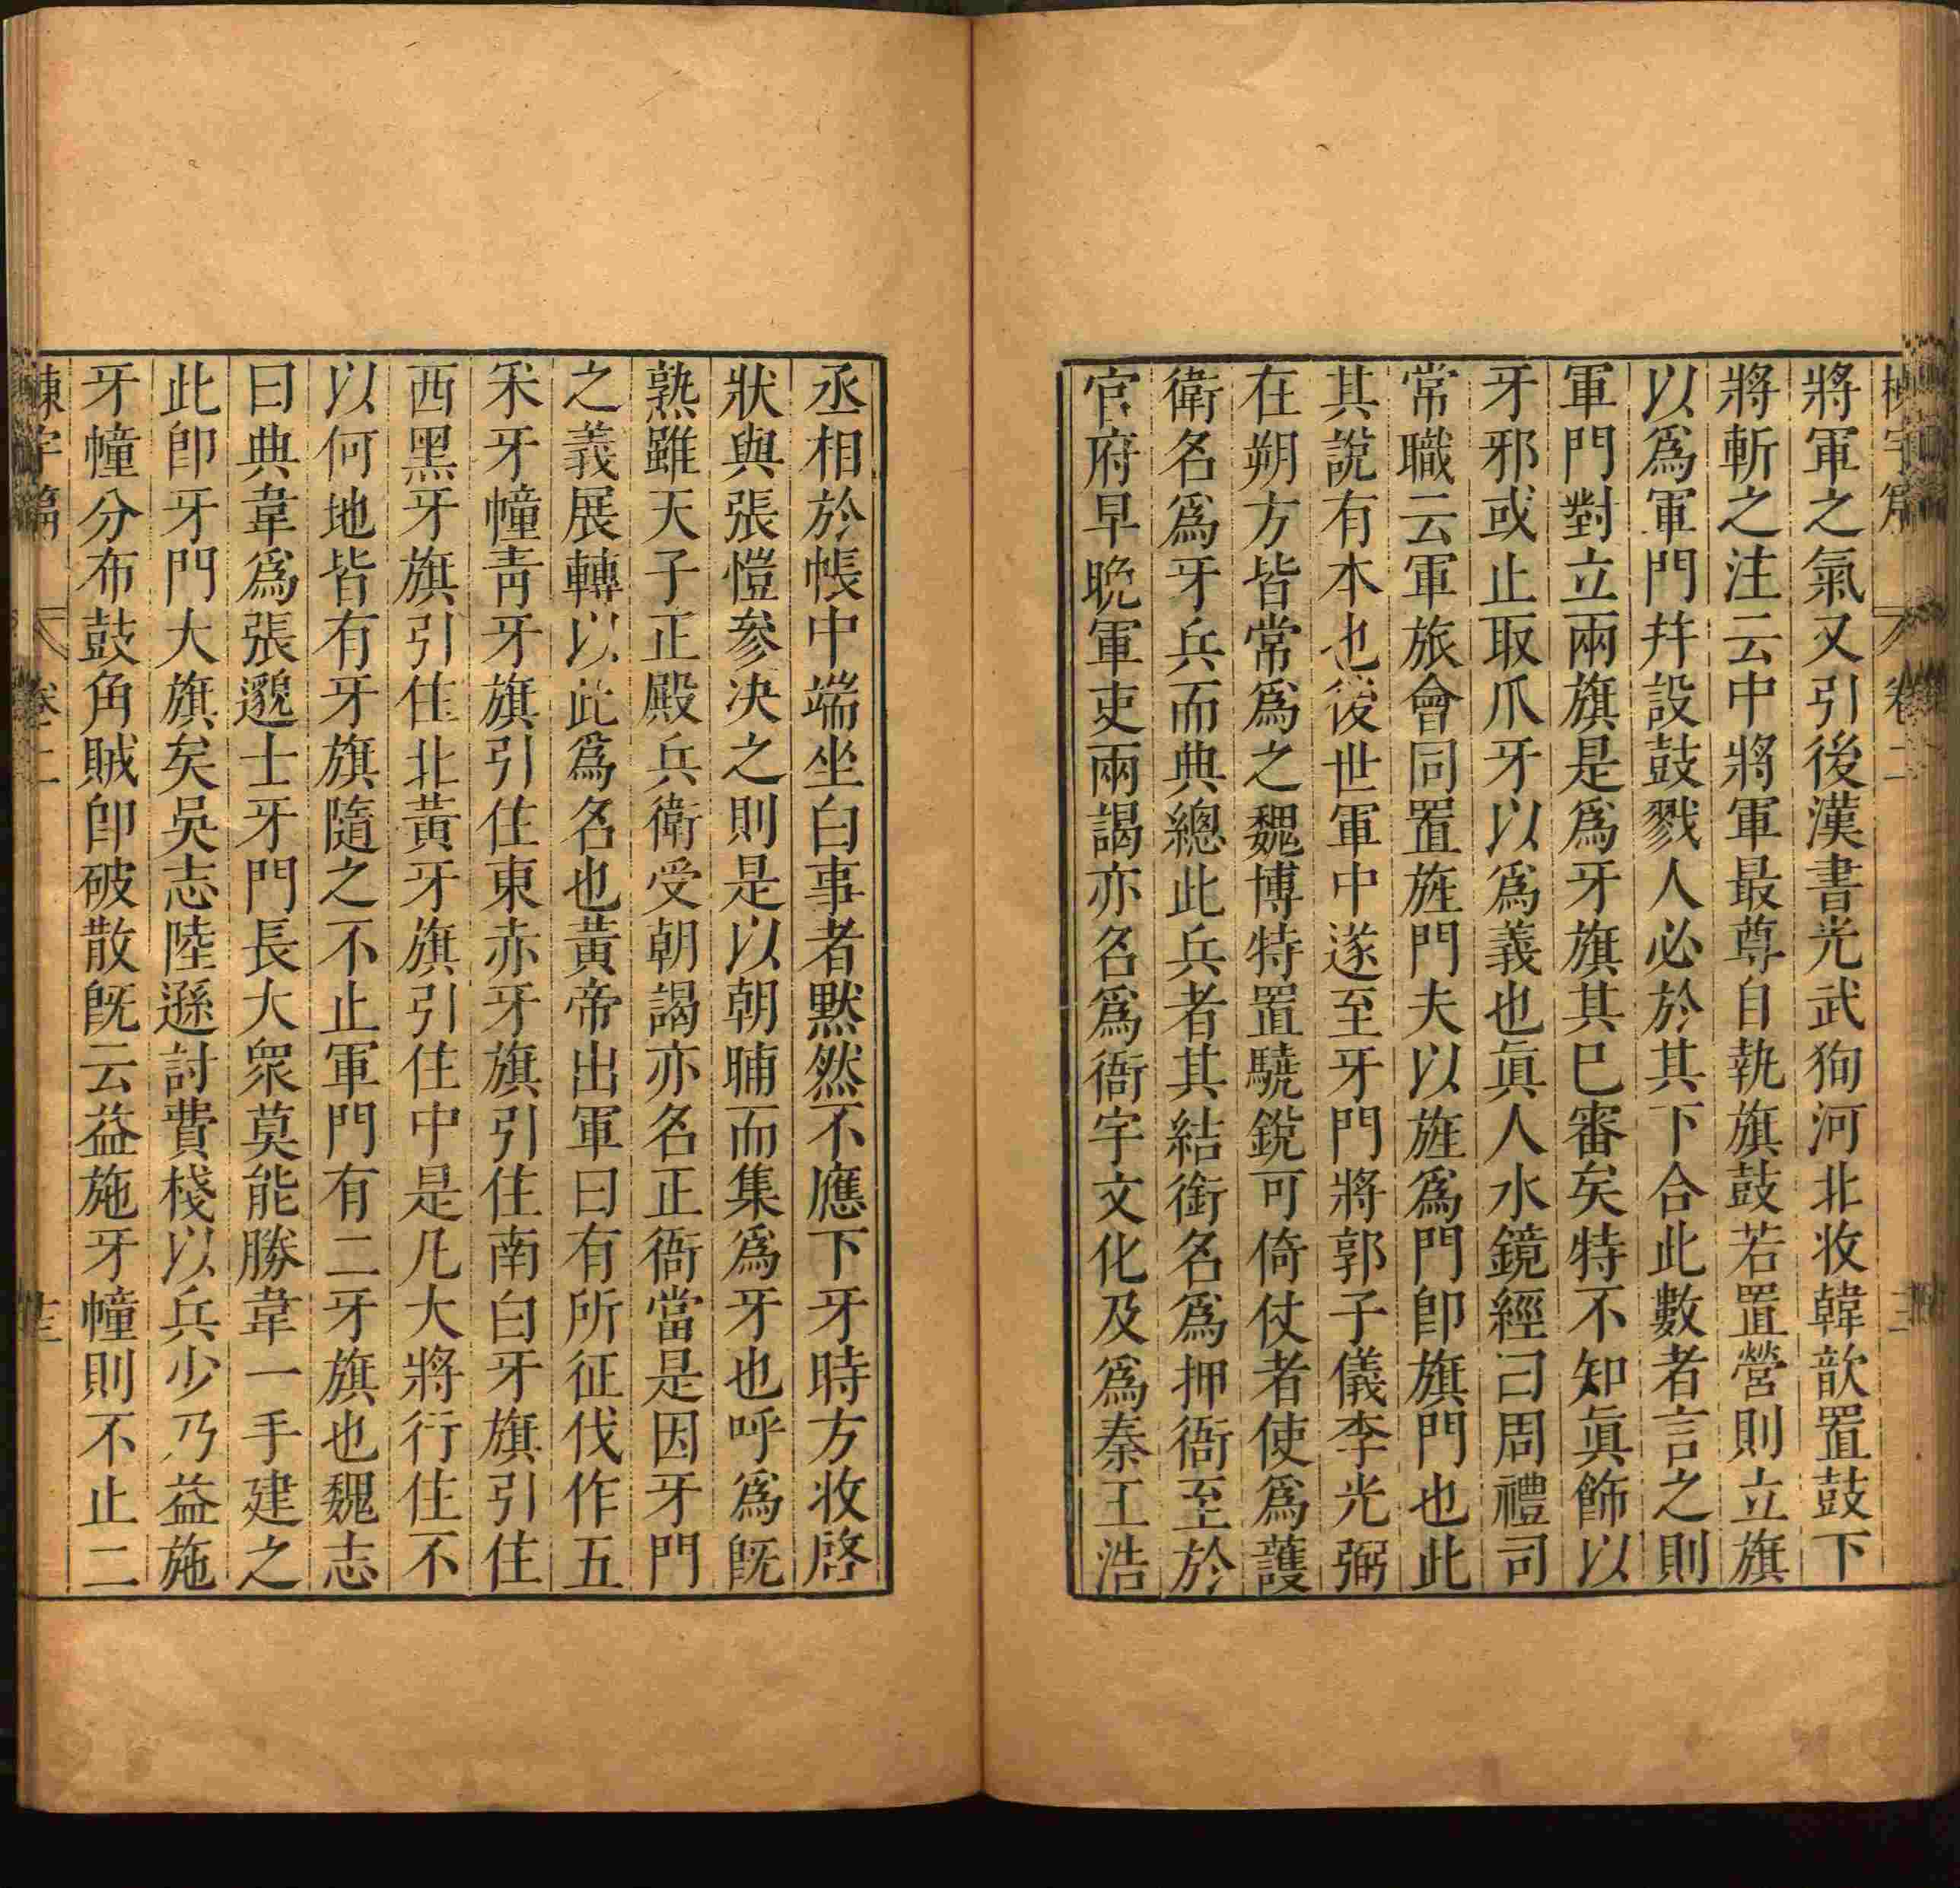 將軍之氣又引後漢書光武狥河北收韓歆置鼓下
將斬之注云中將軍最尊自執旗鼓若置營則立旗
以爲軍門幷設鼓戮人必於其下合此數者言之則
軍門對立兩旗是爲牙旗其已審矣特不知眞飾以
牙邪或止取爪牙以爲義也眞人水鏡經引周禮司
常職云軍旅會同置旌門夫以旌爲門卽旗門也此
其說有本也後世軍中遂至牙門將郭子儀李光弼
在朔方皆常爲之魏博特置驍銳可倚仗者使爲護
衛名爲牙兵而典總此兵者其結銜名爲押衙至於
官府早晚軍吏兩謁亦名爲衙宇文化及爲秦王浩
丞相於帳中端坐白事者默然不應下牙時方收啓
狀與張愷參决之則是以朝晡而集爲牙也呼爲旣
熟雖天子正殿兵衛受朝謁亦名正衙當是因牙門
之義展轉以此爲名也黃帝出軍曰有所征伐作五
采牙幢靑牙旗引住東赤牙旗引住南白牙旗引住
西黑牙旗引住北黃牙旗引住中是凡大將行住不
以何地皆有牙旗隨之不止軍門有二牙旗也魏志
曰典韋爲張邈士牙門長大衆莫能勝韋一手建之
此卽牙門大旗矣吳志陸遜討費棧以兵少乃益施
牙幢分布鼓角賊卽破散旣云益施牙幢則不止二